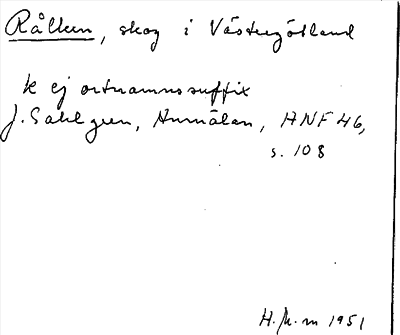 Rålken, skog i Västergötland
k ej ortnamnssuffix
J. Sahlgren, Anmälan, ANF 46,
s. 108
H. J:n 1951